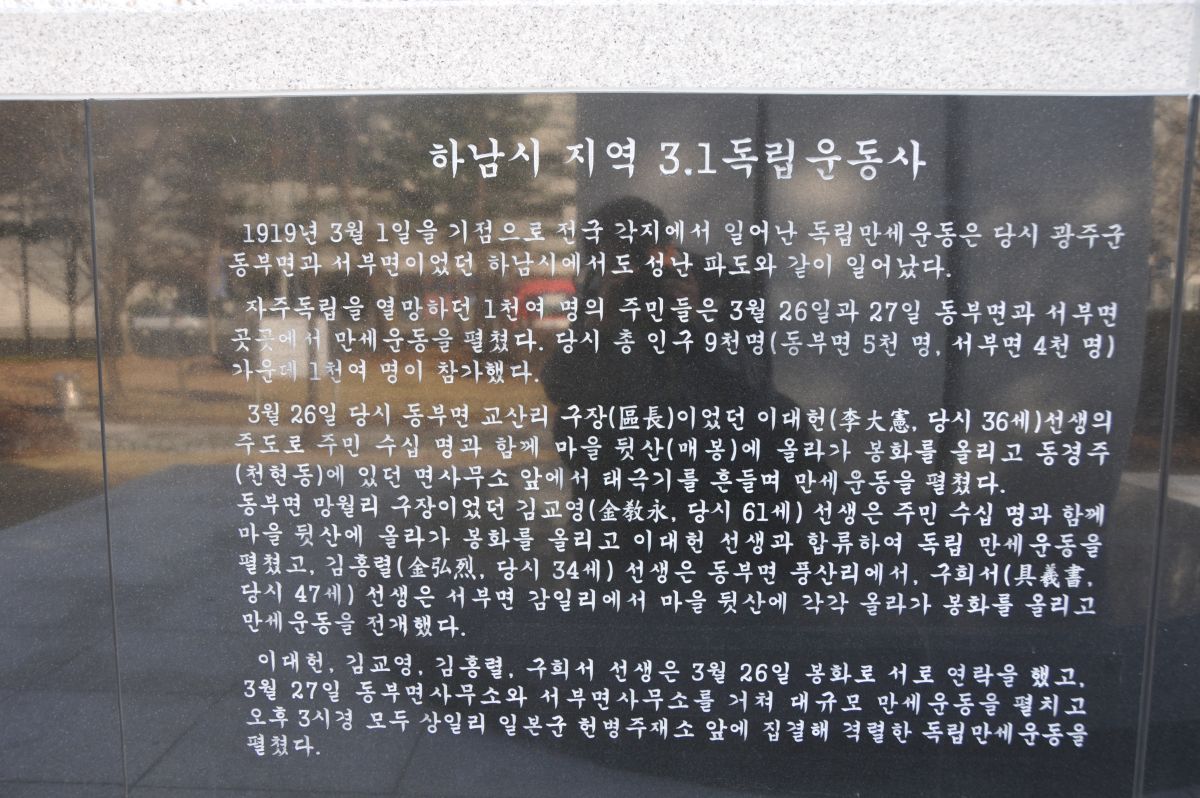 하남시 지역 3.1독립운동사
1919년 3월 1일을 기점으로 전국 각지에서 일어난 독립만세운동은 당시 광주군
동부면과 서부면이었던 하남시에서도 성난 파도와 같이 일어났다.
자주독립을 열망하던 1천여 명의 주민들은 3월 26일과 27일 동부면과 서부면
곳곳에서 만세운동을 펼쳤다. 당시 총 인구 9천명(동부면 5천 명, 서부면 4천 명)
가운데 1천여 명이 참가했다.
3월 26일 당시 동부면 교산리 구장(區長)이었던 이대헌(李大憲, 당시 36세)선생의
주도로 주민 수십 명과 함께 마을 뒷산(매봉)에 올라가 봉화를 올리고 동경주
(천현동)에 있던 면사무소 앞에서 태극기를 흔들며 만세운동을 펼쳤다.
동부면 망월리 구장이었던 김교영(金敎永, 당시 61세) 선생은 주민 수십 명과 함께
마을 뒷산에 올라가 봉화를 올리고 이대헌 선생과 합류하여 독립 만세운동을
펼쳤고, 김홍렬(金弘烈, 당시 34세) 선생은 동부면 풍산리에서, 구희서(具羲書,
당시 47세) 선생은 서부면 감일리에서 마을 뒷산에 각각 올라가 봉화를 올리고
만세운동을 전개했다.
이대헌, 김교영, 김홍렬, 구희서 선생은 3월 26일 봉화로 서로 연락을 했고,
3월 27일 동부면사무소와 서부면사무소를 거쳐 대규모 만세운동을 펼치고
오후 3시경 모두 상일리 일본군 헌병주재소 앞에 집결해 격렬한 독립만세운동을
펼쳤다.